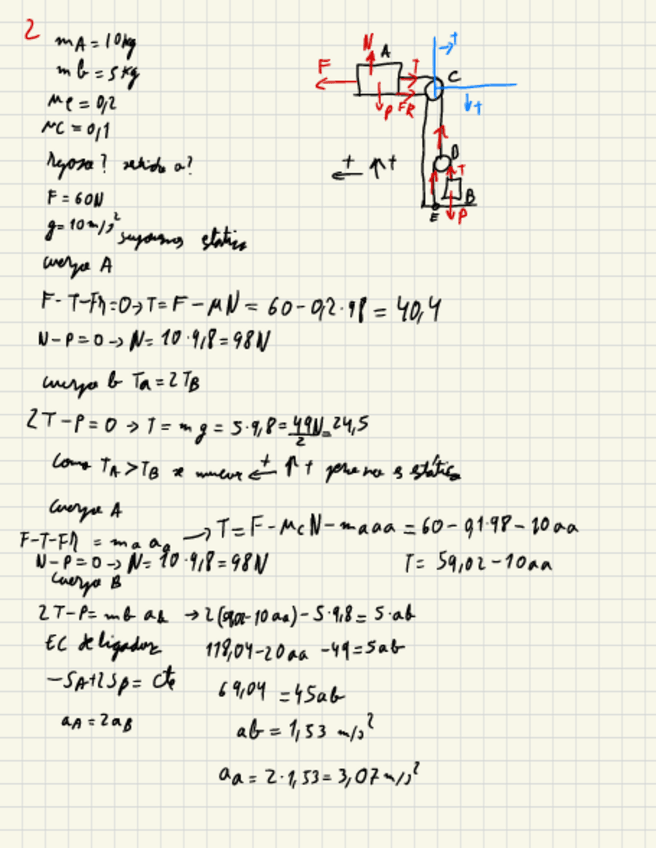 2
mA = 10kg
mb = 5kg
μe = 0,2
μC = 0,1
Reposo? sentido a?
F = 60N
g = 10 m/s²
suponemos statics
cuerpo A
F - T - FR = 0 → T = F - μN = 60 - 0,2·98 = 40,4
N - P = 0 → N = 10·9,8 = 98N
cuerpo b Ta = 2TB
2T - P = 0 → T = mg = 5·9,8 = 49N/2 = 24,5
Como TA > TB se mueve ← + ↑ +
cuerpo A
F - T - FR = ma aa → T = F - μcN - maaa = 60 - 0,1·98 - 10aa
N - P = 0 → N = 10·9,8 = 98N T = 59,02 - 10aa
Cuerpo B
2T - P = mb ab → 2(59,02 - 10aa) - 5·9,8 = 5·ab
EC de ligadura 118,04 - 20aa - 49 = 5ab
-SA + 2SB = cte 69,04 = 45ab
aA = 2aB ab = 1,53 m/s²
aa = 2·1,53 = 3,07 m/s²
N A T
F T C
P FR T
+ + D
T
B
E P